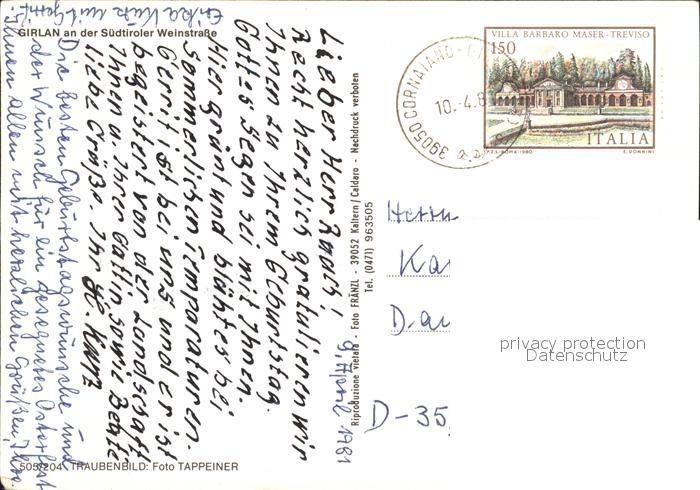 GIRLAN an der Südtiroler Weinstraße
9. April 1981
Lieber Herr
Recht herzlich gratulieren wir
Ihnen zu Ihrem Geburtstag.
Gottes Segen sei mit Ihnen
Hier grünt und blüht es bei
Sommerlichen Temperaturen.
Gerrit ist bei uns und er ist
begeistert von der Landschaft
Ihnen u. Ihrer Gattin sowie Beate
liebe Grüße. Ihr H. Kurz
Die besten Geburtstagswünsche und
der Wunsch für ein gesegnetes Osterfest
Ihnen allen mit herzlichen Grüßen, Ihre
Erika Kurz mit Gerrit.
505/204 TRAUBENBILD: Foto TAPPEINER
Riproduzione vietata - Foto FRÄNZL - 39052 Kaltern/Caldaro - Nachdruck verboten
Tel. (0471) 963505
VILLA BARBARO MASER - TREVISO
150
ITALIA
I.P.Z.S. ROMA - 1980
E. DONNINI
39050 CORNAIANO
10.-4.8
Herrn
Ka
Da
D-35
privacy protection
Datenschutz